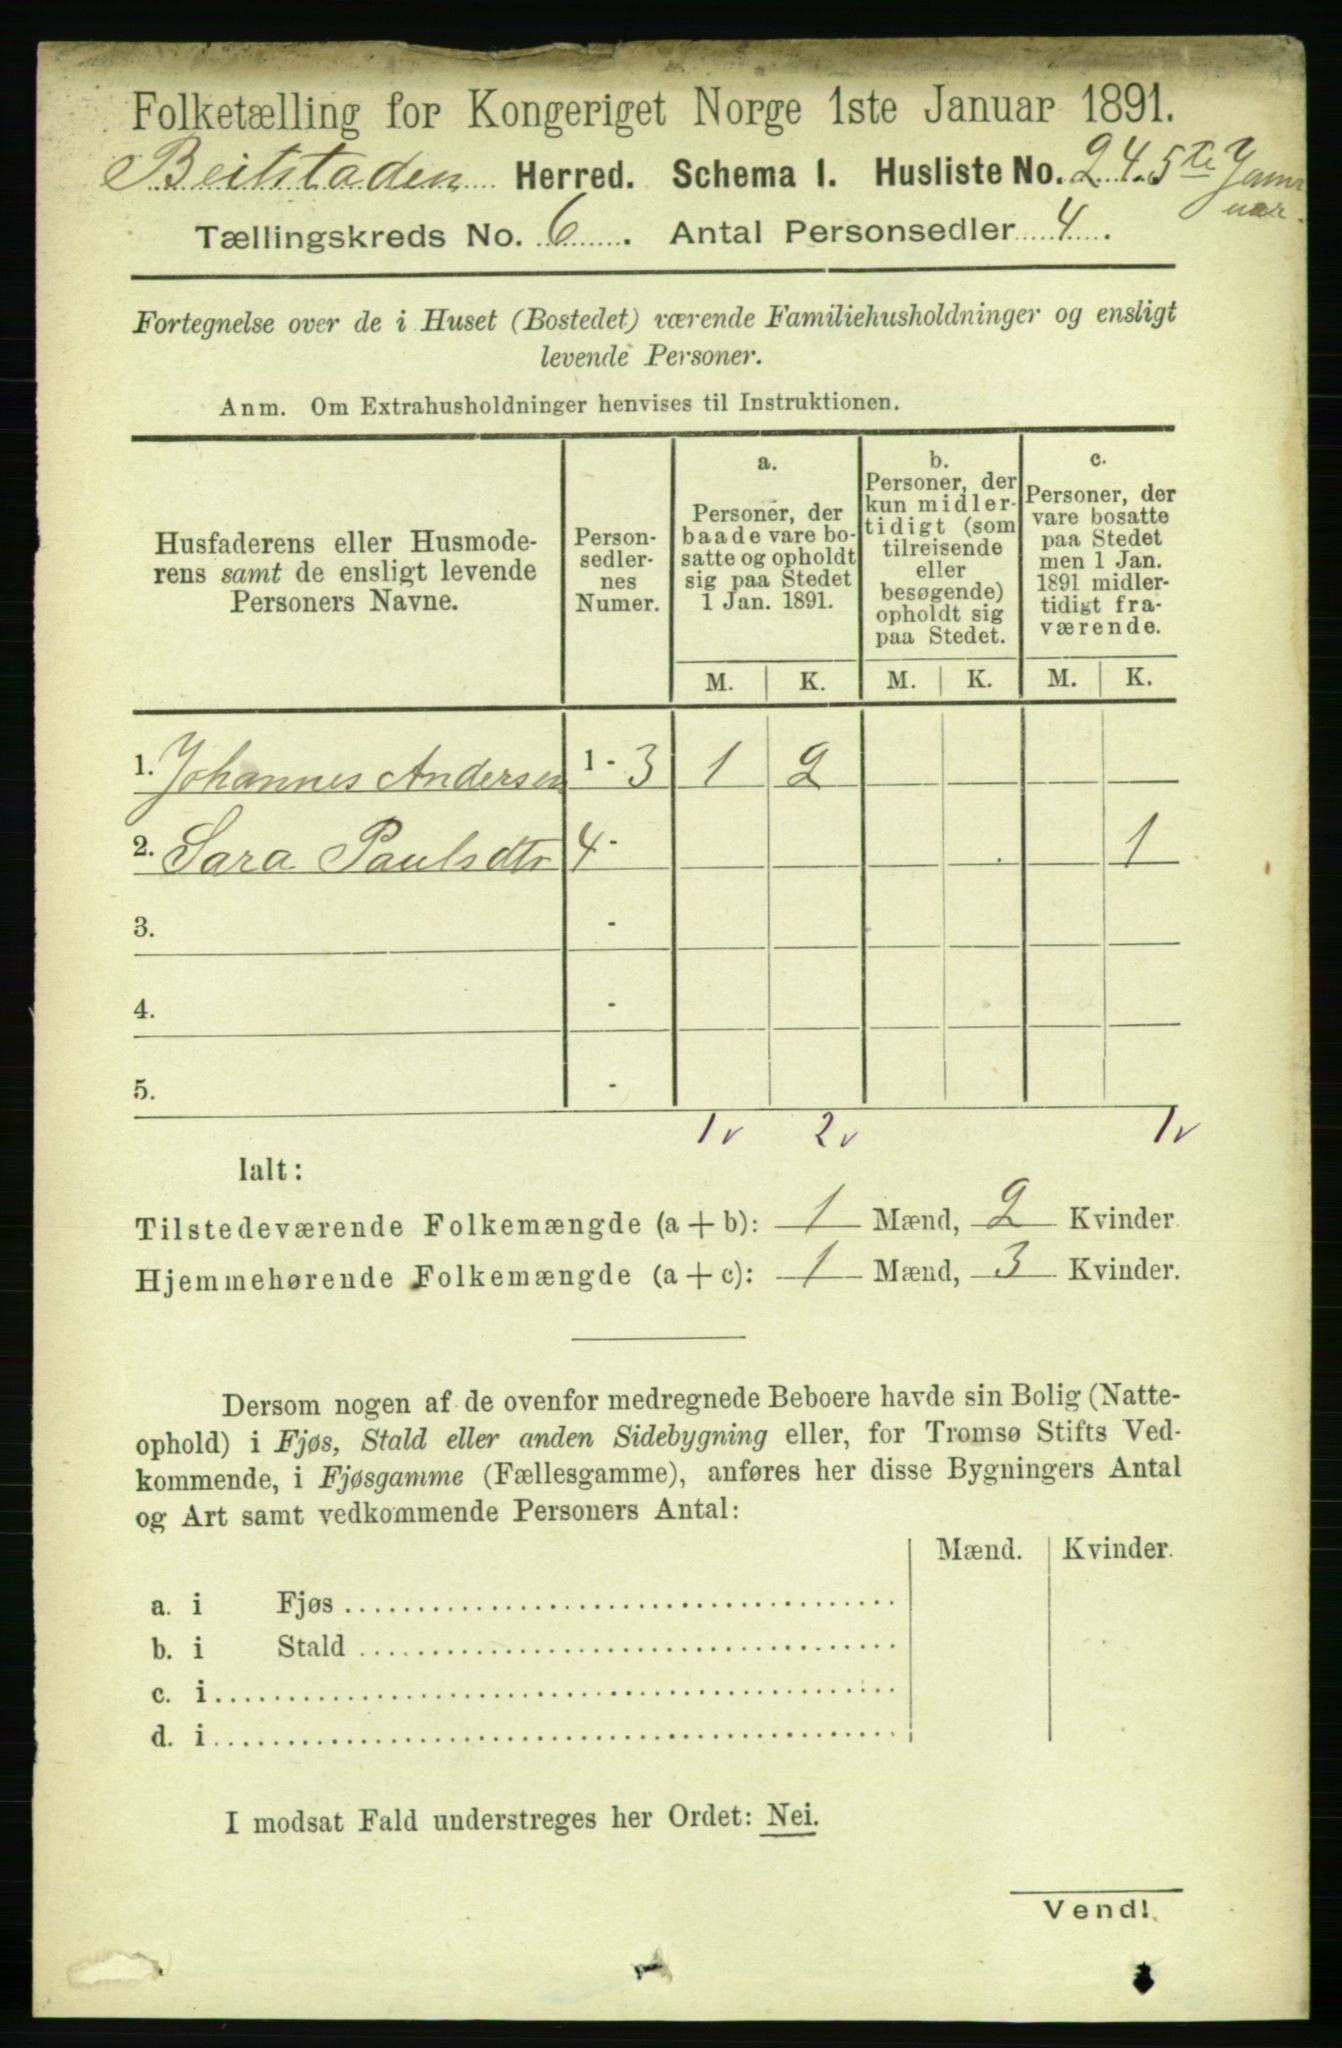 Folketælling for Kongeriget Norge 1ste Januar 1891.
Beitstaden Herred. Schema 1. Husliste No. 24. 5te Janu
uar.
Tællingskreds No. 6. Antal Personsedler 4.
Fortegnelse over de i Huset (Bostedet) værende Familiehusholdninger og ensligt
levende Personer.
Anm. Om Extrahusholdninger henvises til Instruktionen.
Husfaderens eller Husmode-
rens samt de ensligt levende
Personers Navne.
Person-
sedler-
nes
Numer.
a.
Personer, der
baade vare bo-
satte og opholdt
sig paa Stedet
1 Jan. 1891.
b.
Personer, der
kun midler-
tidigt (som
tilreisende
eller
besøgende)
opholdt sig
paa Stedet.
c.
Personer, der
vare bosatte
paa Stedet
men 1 Jan.
1891 midler-
tidigt fra-
værende.
M. K. M. K. M. K.
1. Johannes Andersen 1 - 3 1 2
2. Sara Paulsdtr 4 - 1
3. -
4. -
5. -
1v 2v 1v
Ialt:
Tilstedeværende Folkemængde (a + b): 1 Mænd, 2 Kvinder.
Hjemmehørende Folkemængde (a + c): 1 Mænd, 3 Kvinder.
Dersom nogen af de ovenfor medregnede Beboere havde sin Bolig (Natte-
ophold) i Fjøs, Stald eller anden Sidebygning eller, for Tromsø Stifts Ved-
kommende, i Fjøsgamme (Fællesgamme), anføres her disse Bygningers Antal
og Art samt vedkommende Personers Antal:
Mænd. Kvinder.
a. i Fjøs
b. i Stald
c. i
d. i
I modsat Fald understreges her Ordet: Nei.
Vend!